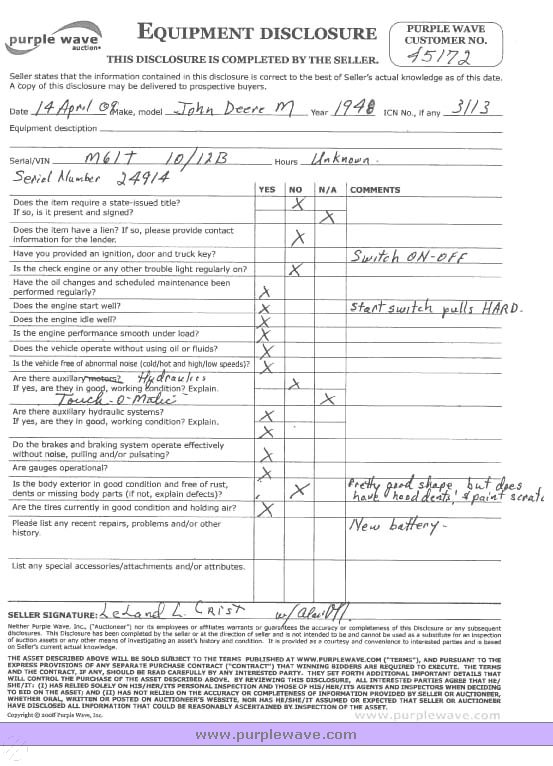 purple wave
auction
EQUIPMENT DISCLOSURE
PURPLE WAVE
CUSTOMER NO.
45172
THIS DISCLOSURE IS COMPLETED BY THE SELLER.
Seller states that the information contained in this disclosure is correct to the best of Seller's actual knowledge as of this date.
A copy of this disclosure may be delivered to prospective buyers.
Date 14 April 08 Make, model John Deere M Year 1948 ICN No., if any 3113
Equipment desctiption
Serial/VIN M61T 10/12B Hours Unknown.
Serial Number 24914
YES NO N/A COMMENTS
Does the item require a state-issued title? X
If so, is it present and signed? X
Does the item have a lien? If so, please provide contact
information for the lender. X
Have you provided an ignition, door and truck key? Switch ON-OFF
Is the check engine or any other trouble light regularly on? X
Have the oil changes and scheduled maintenance been
performed regularly? X
Does the engine start well? X Start switch pulls HARD.
Does the engine idle well? X
Is the engine performance smooth under load? X
Does the vehicle operate without using oil or fluids? X
Is the vehicle free of abnormal noise (cold/hot and high/low speeds)? X
Are there auxiliary motors? Hydraulics
If yes, are they in good, working condition? Explain. X
Touch-O-Matic X
Are there auxiliary hydraulic systems? X
If yes, are they in good, working condition? Explain. X
Do the brakes and braking system operate effectively
without noise, pulling and/or pulsating? X
Are gauges operational? X
Is the body exterior in good condition and free of rust, Pretty good shape, but does
dents or missing body parts (if not, explain defects)? X have hood dents, & paint scratc
Are the tires currently in good condition and holding air? X
Please list any recent repairs, problems and/or other New battery-
history.
List any special accessories/attachments and/or attributes.
SELLER SIGNATURE: LeLand L. Crist w/
Neither Purple Wave, Inc., ("Auctioneer") nor its employees or affiliates warrants or guarantees the accuracy or completeness of this Disclosure or any subsequent
disclosures. This Disclosure has been completed by the seller or at the direction of seller and is not intended to and cannot be used as a substitute for an inspection
of auction assets or any other means of investigating an asset's history and condition. It is provided as a courtesy and convenience to interested parties and is based
on Seller's current actual knowledge.
THE ASSET DESCRIBED ABOVE WILL BE SOLD SUBJECT TO THE TERMS PUBLISHED AT WWW.PURPLEWAVE.COM ("TERMS"), AND PURSUANT TO THE
EXPRESS PROVISIONS OF ANY SEPARATE PURCHASE CONTRACT ("CONTRACT") THAT WINNING BIDDERS ARE REQUIRED TO EXECUTE. THE TERMS
AND THE CONTRACT, IF ANY, SHOULD BE READ CAREFULLY BY ANY INTERESTED PARTY. THEY SET FORTH ADDITIONAL IMPORTANT DETAILS THAT
WILL CONTROL THE PURCHASE OF THE ASSET DESCRIBED ABOVE. BY REVIEWING THIS DISCLOSURE, ALL INTERESTED PARTIES AGREE THAT HE/
SHE/IT: (I) HAS RELIED SOLELY ON HIS/HER/ITS PERSONAL INSPECTION AND THOSE OF HIS/HER/ITS AGENTS AND INSPECTORS WHEN DECIDING
TO BID ON THE ASSET; AND (II) HAS NOT RELIED ON THE ACCURACY OR COMPLETENESS OF INFORMATION PROVIDED BY SELLER OR AUCTIONEER,
WHETHER ORAL, WRITTEN OR POSTED ON OWNER'S WEBSITE, NOR HAS HE/SHE/IT ASSUMED OR EXPECTED THAT SELLER OR AUCTIONEER
HAVE DISCLOSED ALL INFORMATION THAT COULD BE REASONABLY ASCERTAINED BY INSPECTION OF THE ASSET.
Copyright © 2008 Purple Wave, Inc.
www.purplewave.com
www.purplewave.com